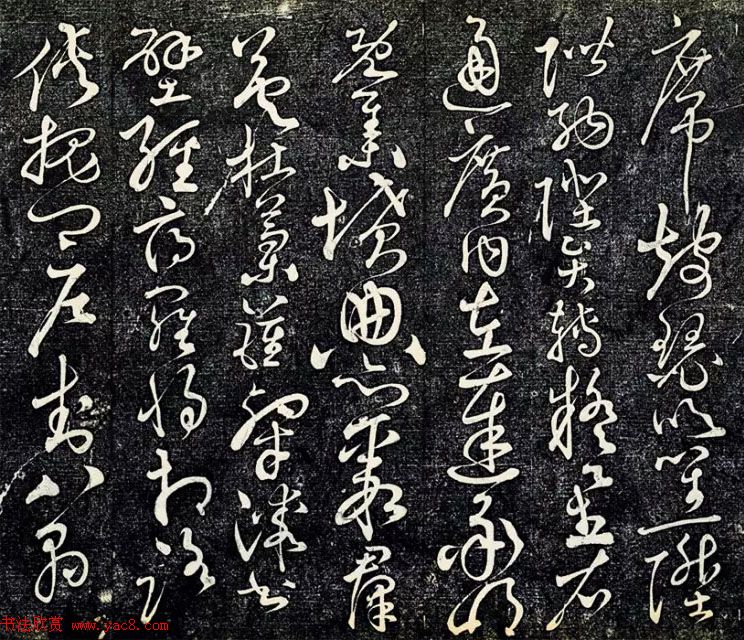 席鼓瑟吹笙陞
階納陛弁轉疑星右
通廣內左達承明
既集墳典亦聚群
英杜稾鍾隸漆書
壁經府羅將相路
俠槐卿戶封八縣
书法欣赏 www.yac8.com